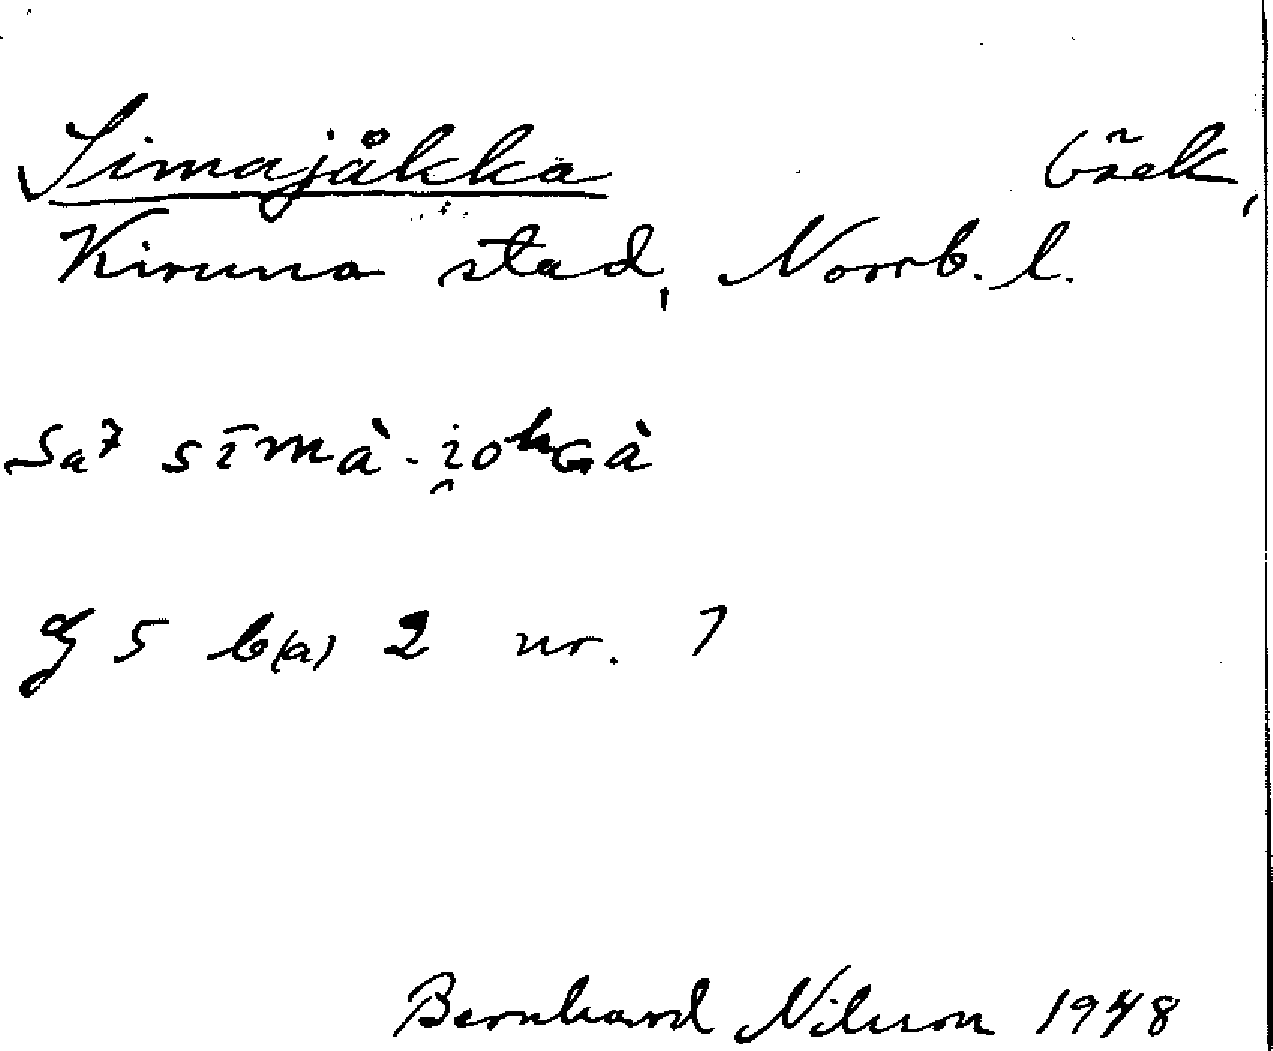 Simajåkka bäck,
Kiruna stad, Norrb. l.
Sa⁷ sīmà-i̯oʰGà
G 5 b(a) 2 nr. 7
Bernhard Nilsson 1948